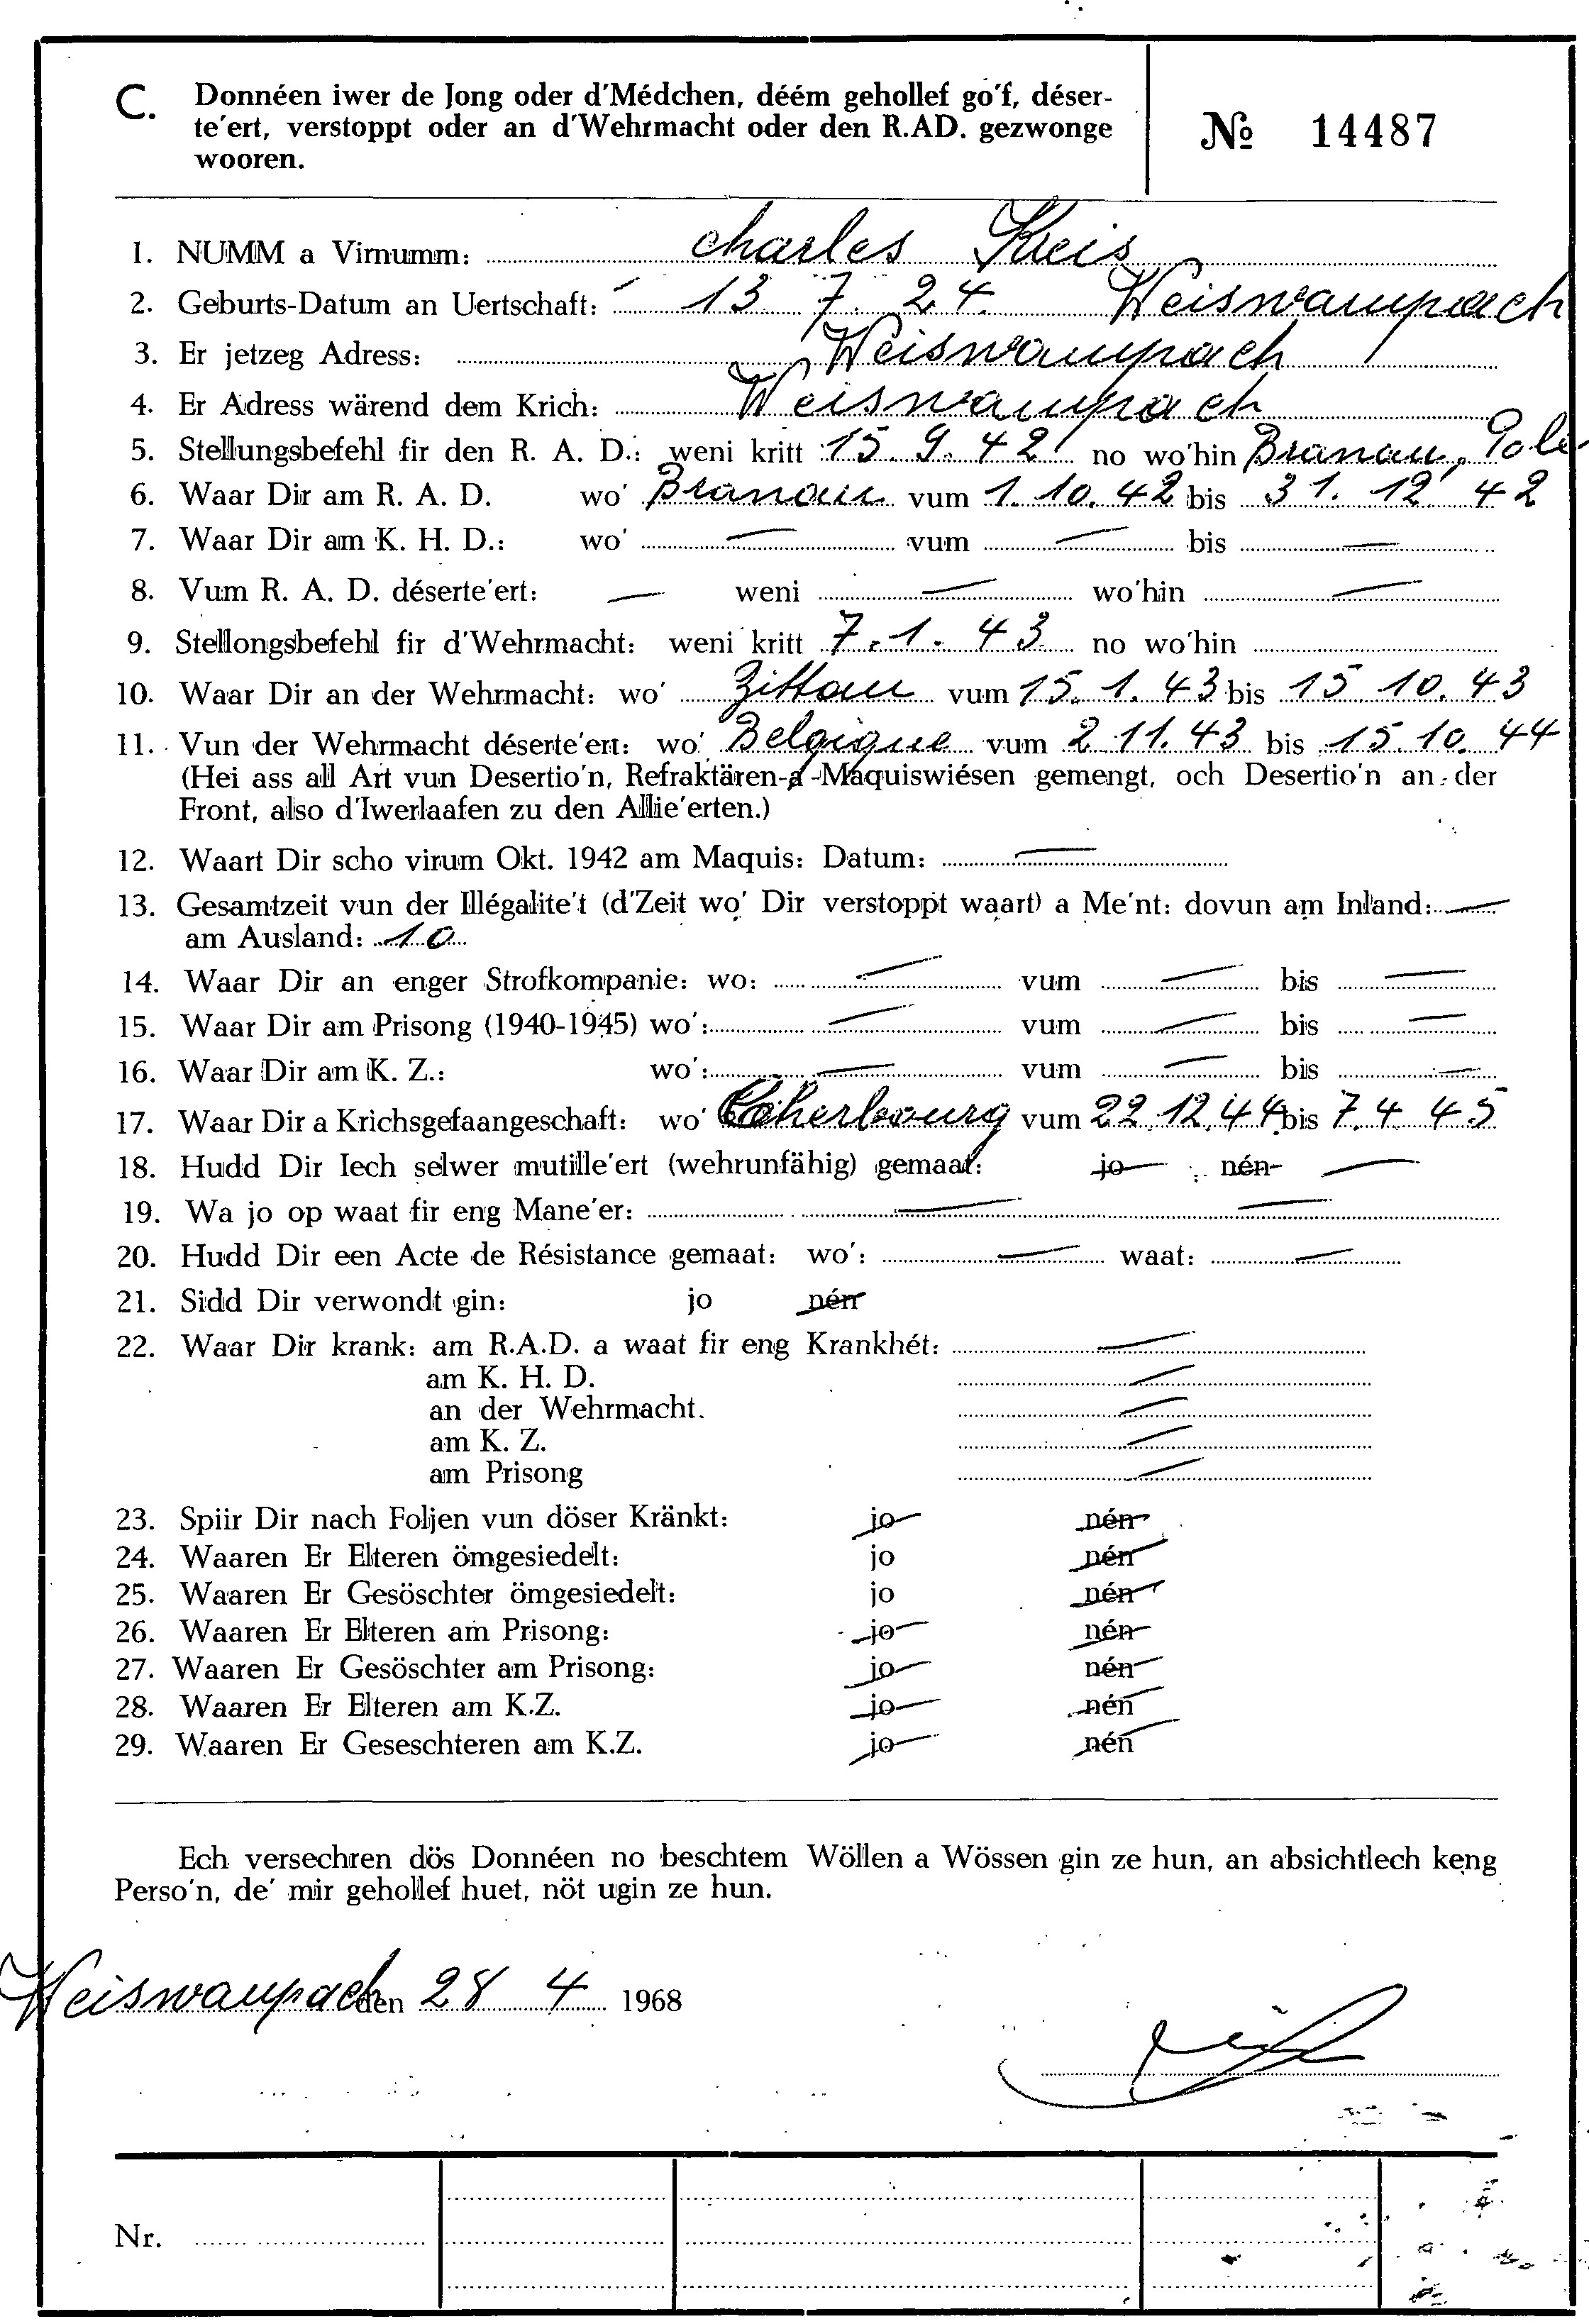 C. Donnéen iwer de Jong oder d'Médchen, déém gehollef go'f, déser-
te'ert, verstoppt oder an d'Wehrmacht oder den R.AD. gezwonge
wooren.
№ 14487
1. NUMM a Virnumm: charles Kreis
2. Geburts-Datum an Uertschaft: 13 7. 24. Weiswampach
3. Er jetzeg Adress: Weiswampach
4. Er Adress wärend dem Krich: Weiswampach
5. Stellungsbefehl fir den R. A. D.: weni kritt : 15. 9. 42 no wo'hin Branau, Pole
6. Waar Dir am R. A. D. wo' Branau vum 1. 10. 42 bis 31. 12 42
7. Waar Dir am K. H. D.: wo' — vum — bis —
8. Vum R. A. D. déserte'ert: — weni — wo'hin —
9. Stellongsbefehl fir d'Wehrmacht: weni kritt 7. 1. 43 no wo'hin
10. Waar Dir an der Wehrmacht: wo' Zittau vum 15. 1. 43 bis 15 10. 43
11. Vun der Wehrmacht déserte'ert: wo' Belgique vum 2 11. 43 bis 15. 10. 44
(Hei ass all Art vun Desertio'n, Refraktären-a-Maquiswiésen gemengt, och Desertio'n an der
Front, also d'Iwerlaafen zu den Allie'erten.)
12. Waart Dir scho virum Okt. 1942 am Maquis: Datum: —
13. Gesamtzeit vun der Illégalite't (d'Zeit wo' Dir verstoppt waart) a Me'nt: dovun am Inland: —
am Ausland: 10
14. Waar Dir an enger Strofkompanie: wo: — vum — bis —
15. Waar Dir am Prisong (1940-1945) wo': — vum — bis —
16. Waar Dir am K. Z.: wo': — vum — bis —
17. Waar Dir a Krichsgefaangeschaft: wo' Cherbourg vum 22. 12. 44 bis 7. 4 45
18. Hudd Dir Iech selwer mutille'ert (wehrunfähig) gemaat: jo nén —
19. Wa jo op waat fir eng Mane'er: — —
20. Hudd Dir een Acte de Résistance gemaat: wo': — waat: —
21. Sidd Dir verwondt gin: jo nén
22. Waar Dir krank: am R.A.D. a waat fir eng Krankhét: —
am K. H. D. —
an der Wehrmacht. —
am K. Z. —
am Prisong —
23. Spiir Dir nach Foljen vun döser Kränkt: jo nén
24. Waaren Er Elteren ömgesiedelt: jo nén
25. Waaren Er Gesöschter ömgesiedelt: jo nén
26. Waaren Er Elteren am Prisong: jo nén
27. Waaren Er Gesöschter am Prisong: jo nén
28. Waaren Er Elteren am K.Z. jo nén
29. Waaren Er Geseschteren am K.Z. jo nén
Ech versechren dös Donnéen no beschtem Wöllen a Wössen gin ze hun, an absichtlech keng
Perso'n, de' mir gehollef huet, nöt ugin ze hun.
Weiswampach den 28 4 1968
Nr.